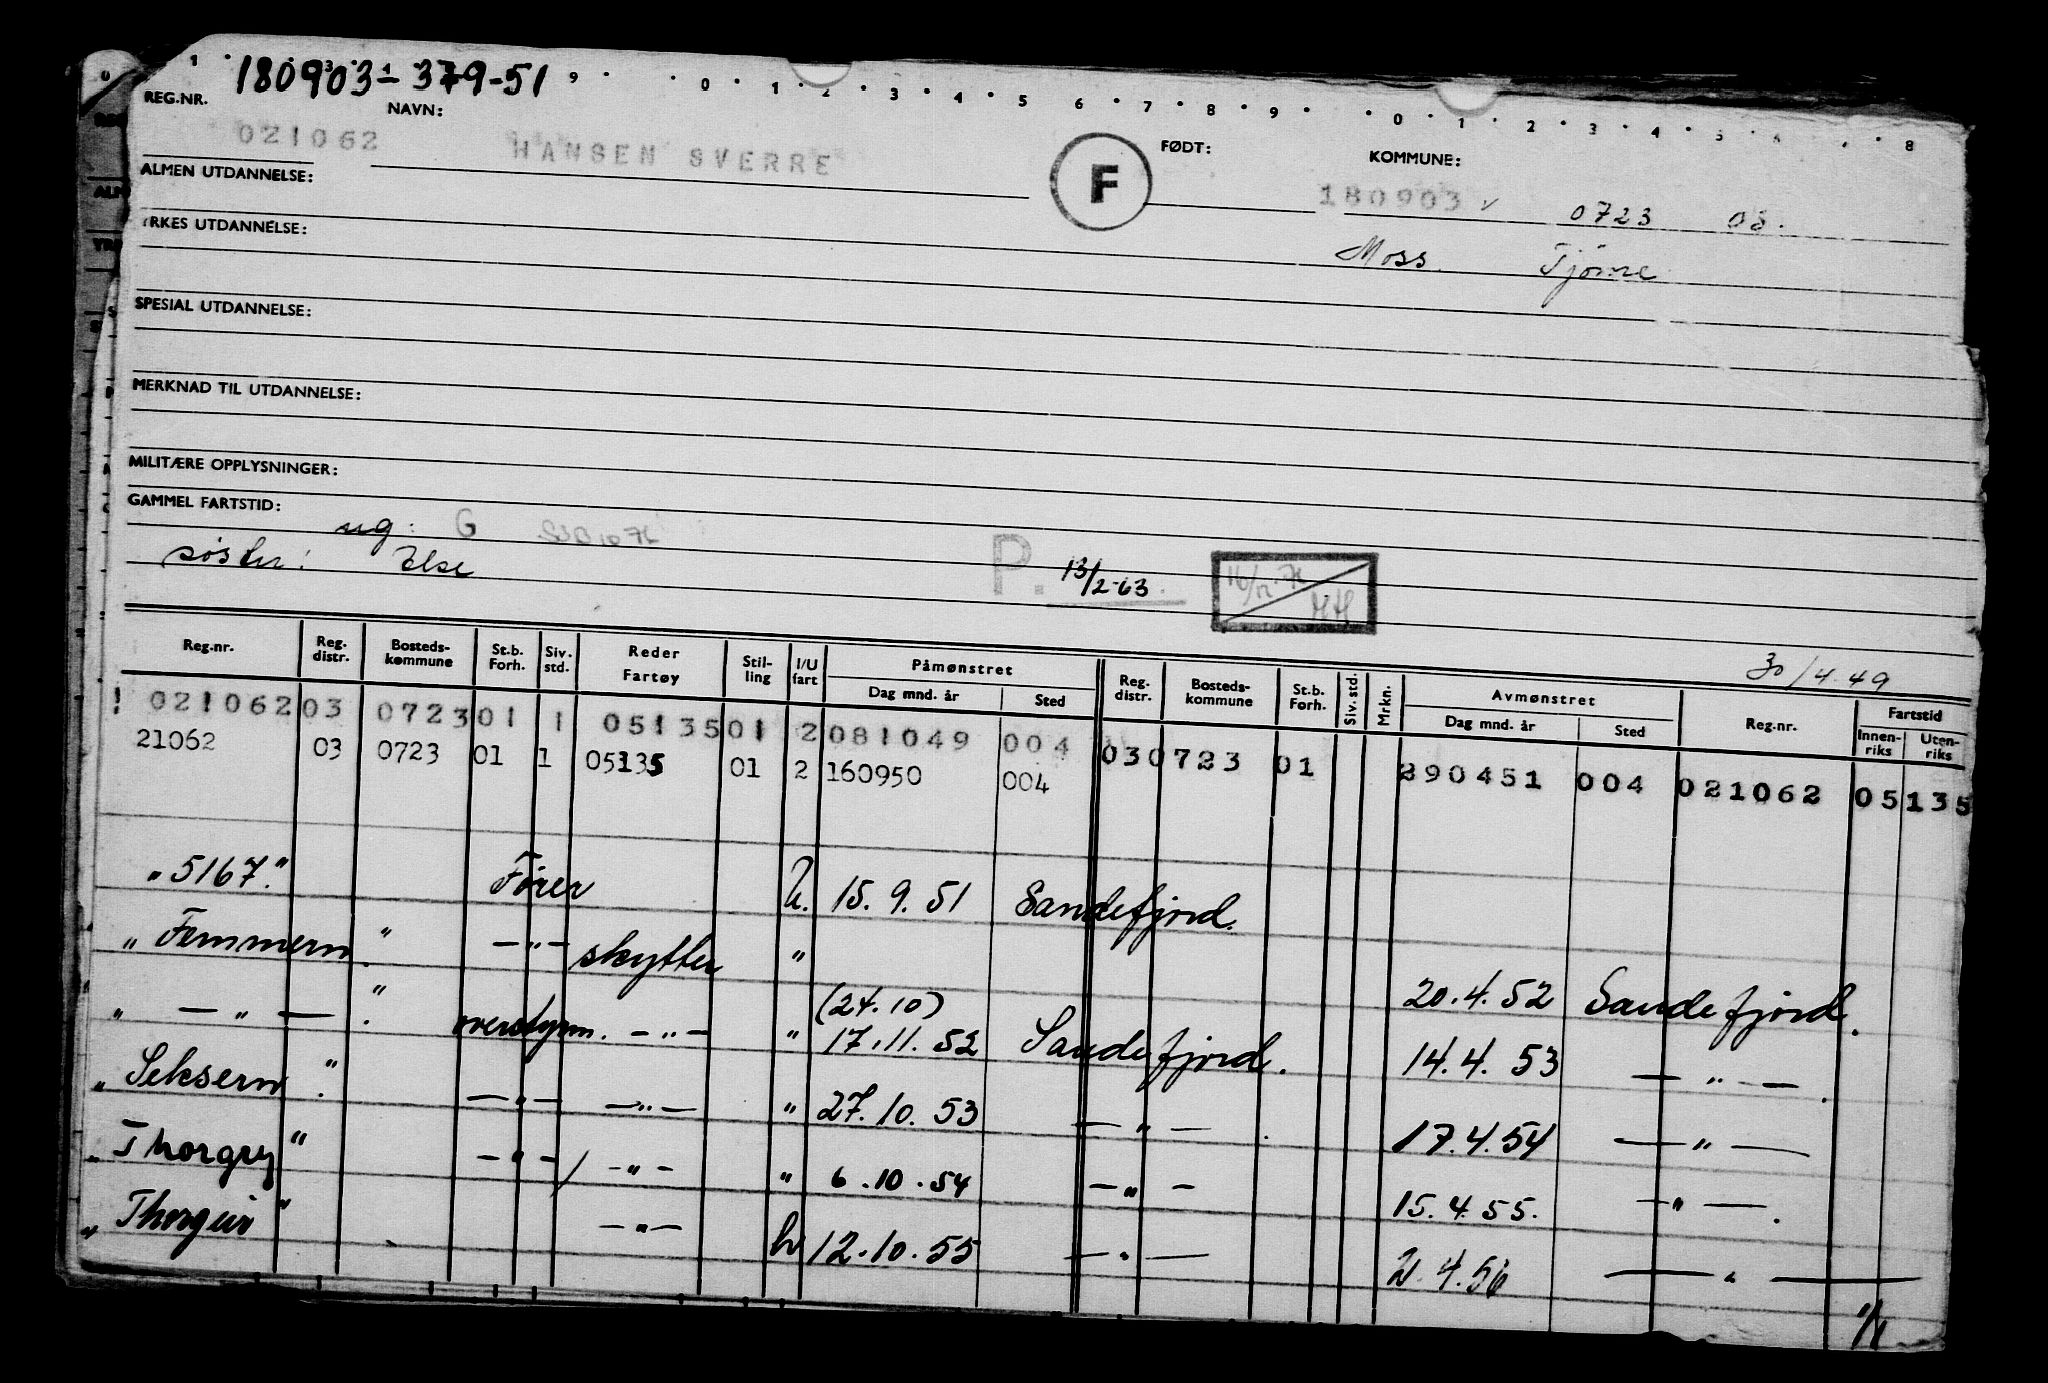 180903-379-51
1 3 4 9 0 1 2 3 4 5 6 7 8 9 0 1 2 3 4 5 8
REG.NR. NAVN: FØDT: KOMMUNE:
021062 HANSEN SVERRE F 180903 0723 08.
ALMEN UTDANNELSE:
Moss. Tjöme
YRKES UTDANNELSE:
SPESIAL UTDANNELSE:
MERKNAD TIL UTDANNELSE:
MILITÆRE OPPLYSNINGER:
GAMMEL FARTSTID:
ug: G
søster: Else P. 13/2-63.
30/4 49
Reg.nr. Reg. distr. Bosteds-kommune St.b. Forh. Siv. std. Reder Fartøy Stil-ling I/U fart Påmønstret Dag mnd. år Sted Reg. distr. Bosteds-kommune St.b. Forh. Siv. std. Mrkn. Avmønstret Dag mnd. år Sted Reg.nr. Fartstid Innen-riks Uten-riks
! 021062 03 0723 01 1 05135 01 2 081049 004 03 0723 01 290451 004 021062 05135
21062 03 0723 01 1 05135 01 2 160950 004
"5167." Fører U. 15.9.51 Sandefjord.
"Femmern." —"— skytter " 20.4.52 Sandefjord.
" —"— ". overstyrm. —"— " (24.10) 17.11.52 Sandefjord. 14.4.53 —"—.
"Seksern". —"— —"— " 27.10.53 —"—. 17.4.54 —"—
"Thorgry" —"— / —"— " 6.10.54 —"— 15.4.55. —"—.
"Thorgeir" —"— 12.10.55 —"— 21.4.56 —"—